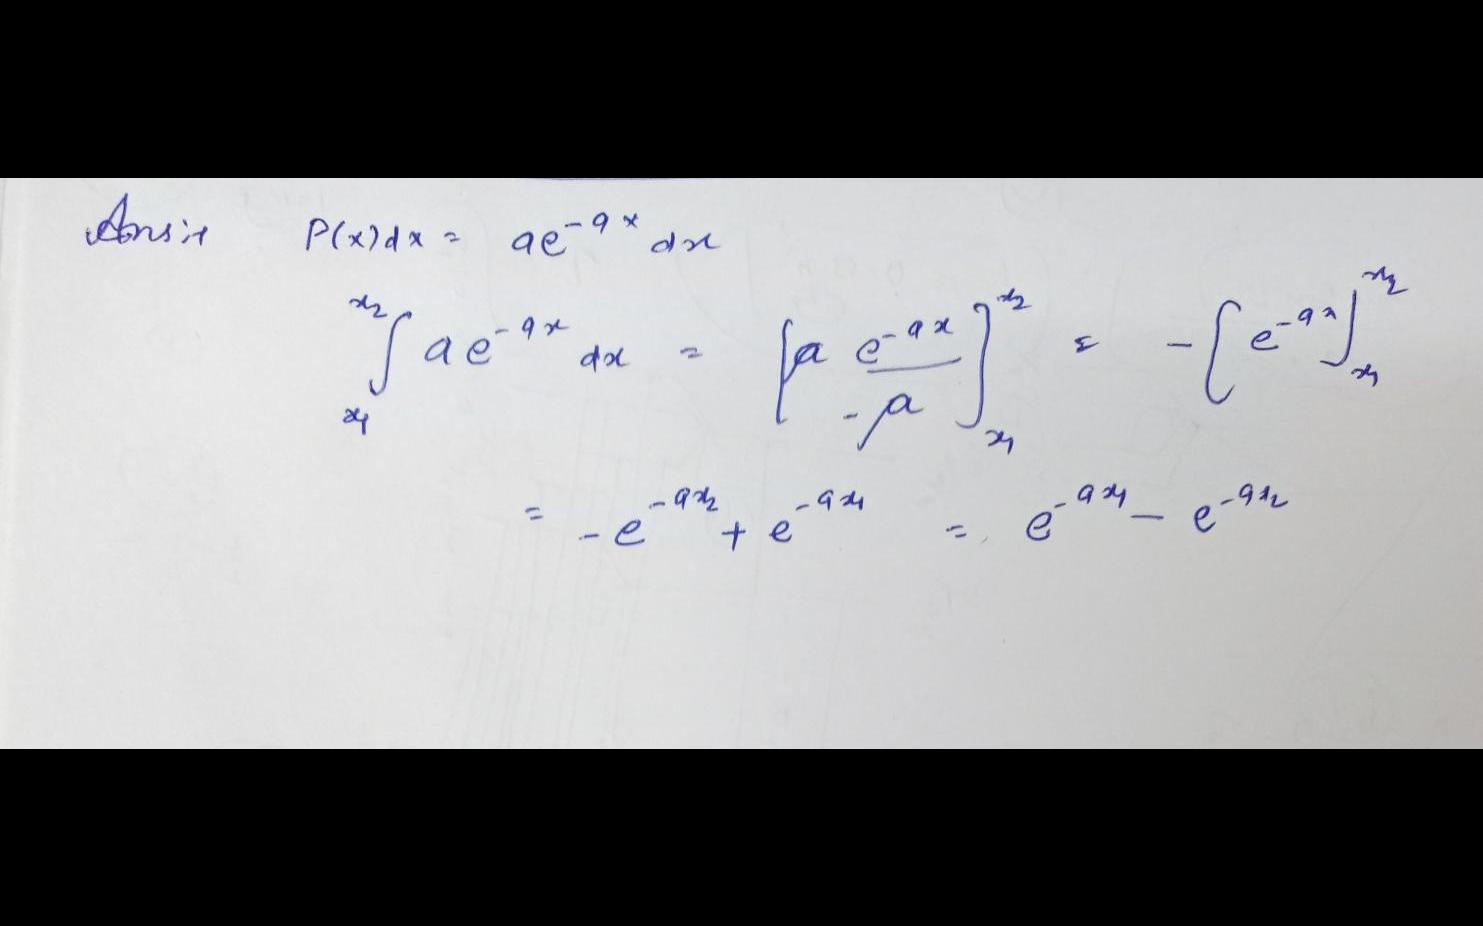 Ans:→ P(x)dx = ae^{-ax} dx
∫_{x₁}^{x₂} a e^{-ax} dx = [a e^{-ax}/-a]_{x₁}^{x₂} = -[e^{-ax}]_{x₁}^{x₂}
= -e^{-ax₂} + e^{-ax₁} = e^{-ax₁} - e^{-ax₂}